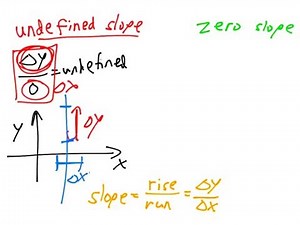 undefined slope
zero slope
ΔY
0
= undefined
ΔX
Y
ΔY
X
ΔX
slope = rise/run = ΔY/ΔX